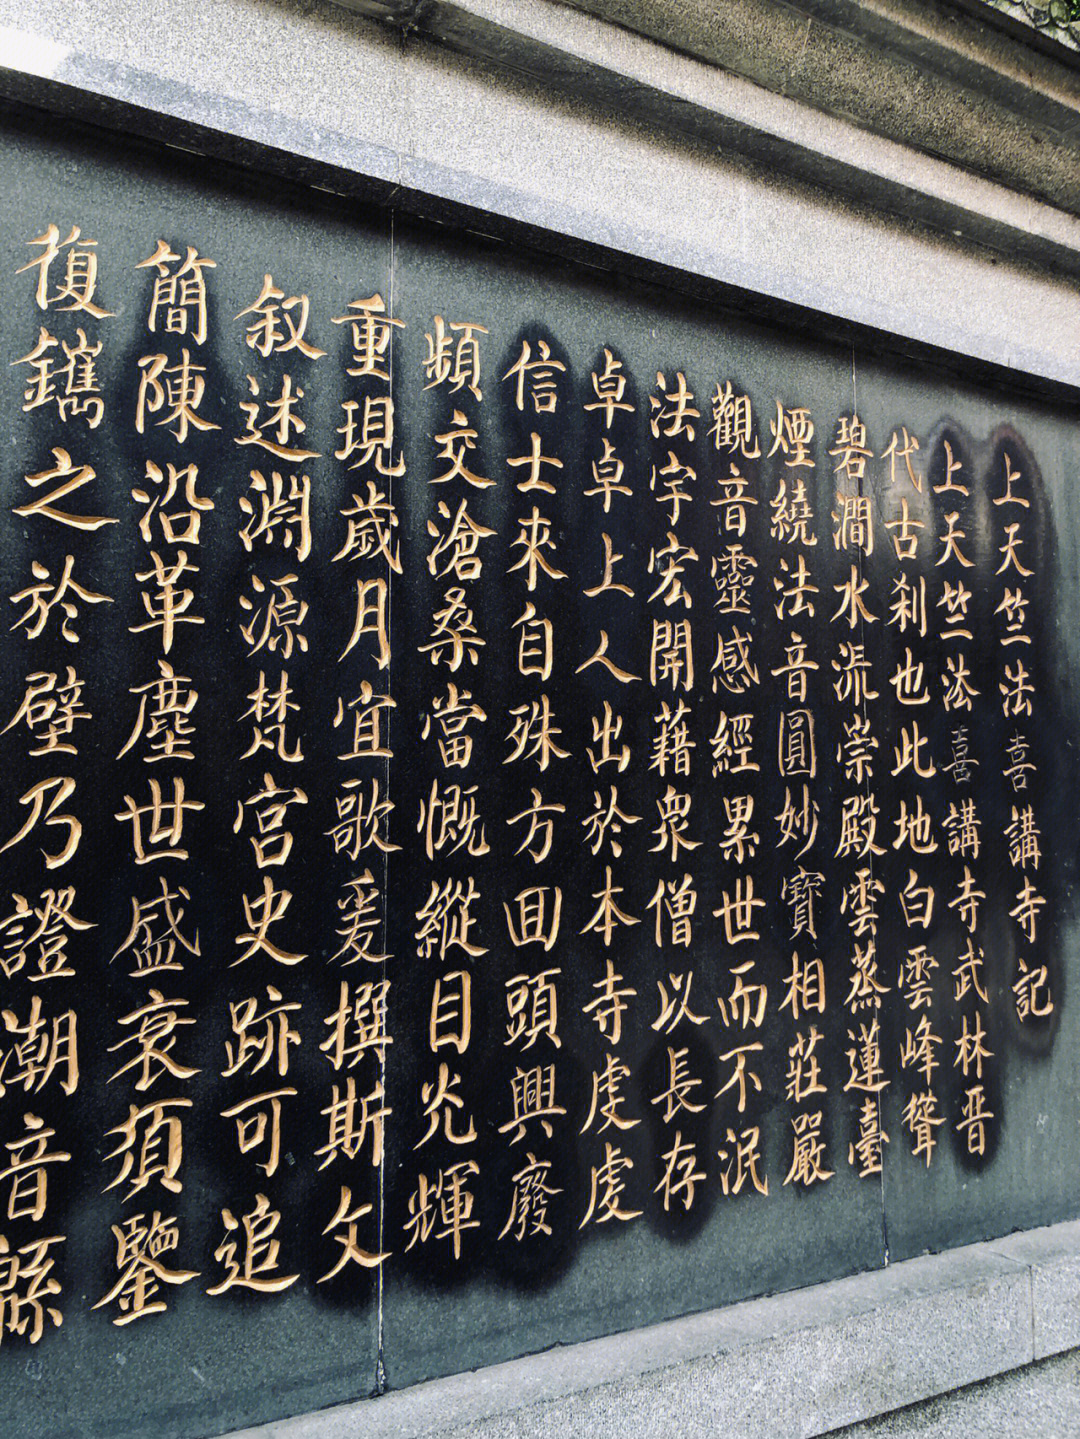 上天竺法喜講寺記
上天竺法喜講寺武林晋
代古刹也此地白雲峰聳
碧澗水流崇殿雲蒸蓮臺
煙繞法音圓妙寶相莊嚴
觀音靈感經累世而不泯
法宇宏開藉衆僧以長存
卓卓上人出於本寺虔虔
信士來自殊方回頭興廢
頻交滄桑當慨縱目光輝
重現歲月宜歌爰撰斯文
叙述淵源梵宮史跡可追
簡陳沿革塵世盛衰須鑒
復鐫之於壁乃證潮音縣